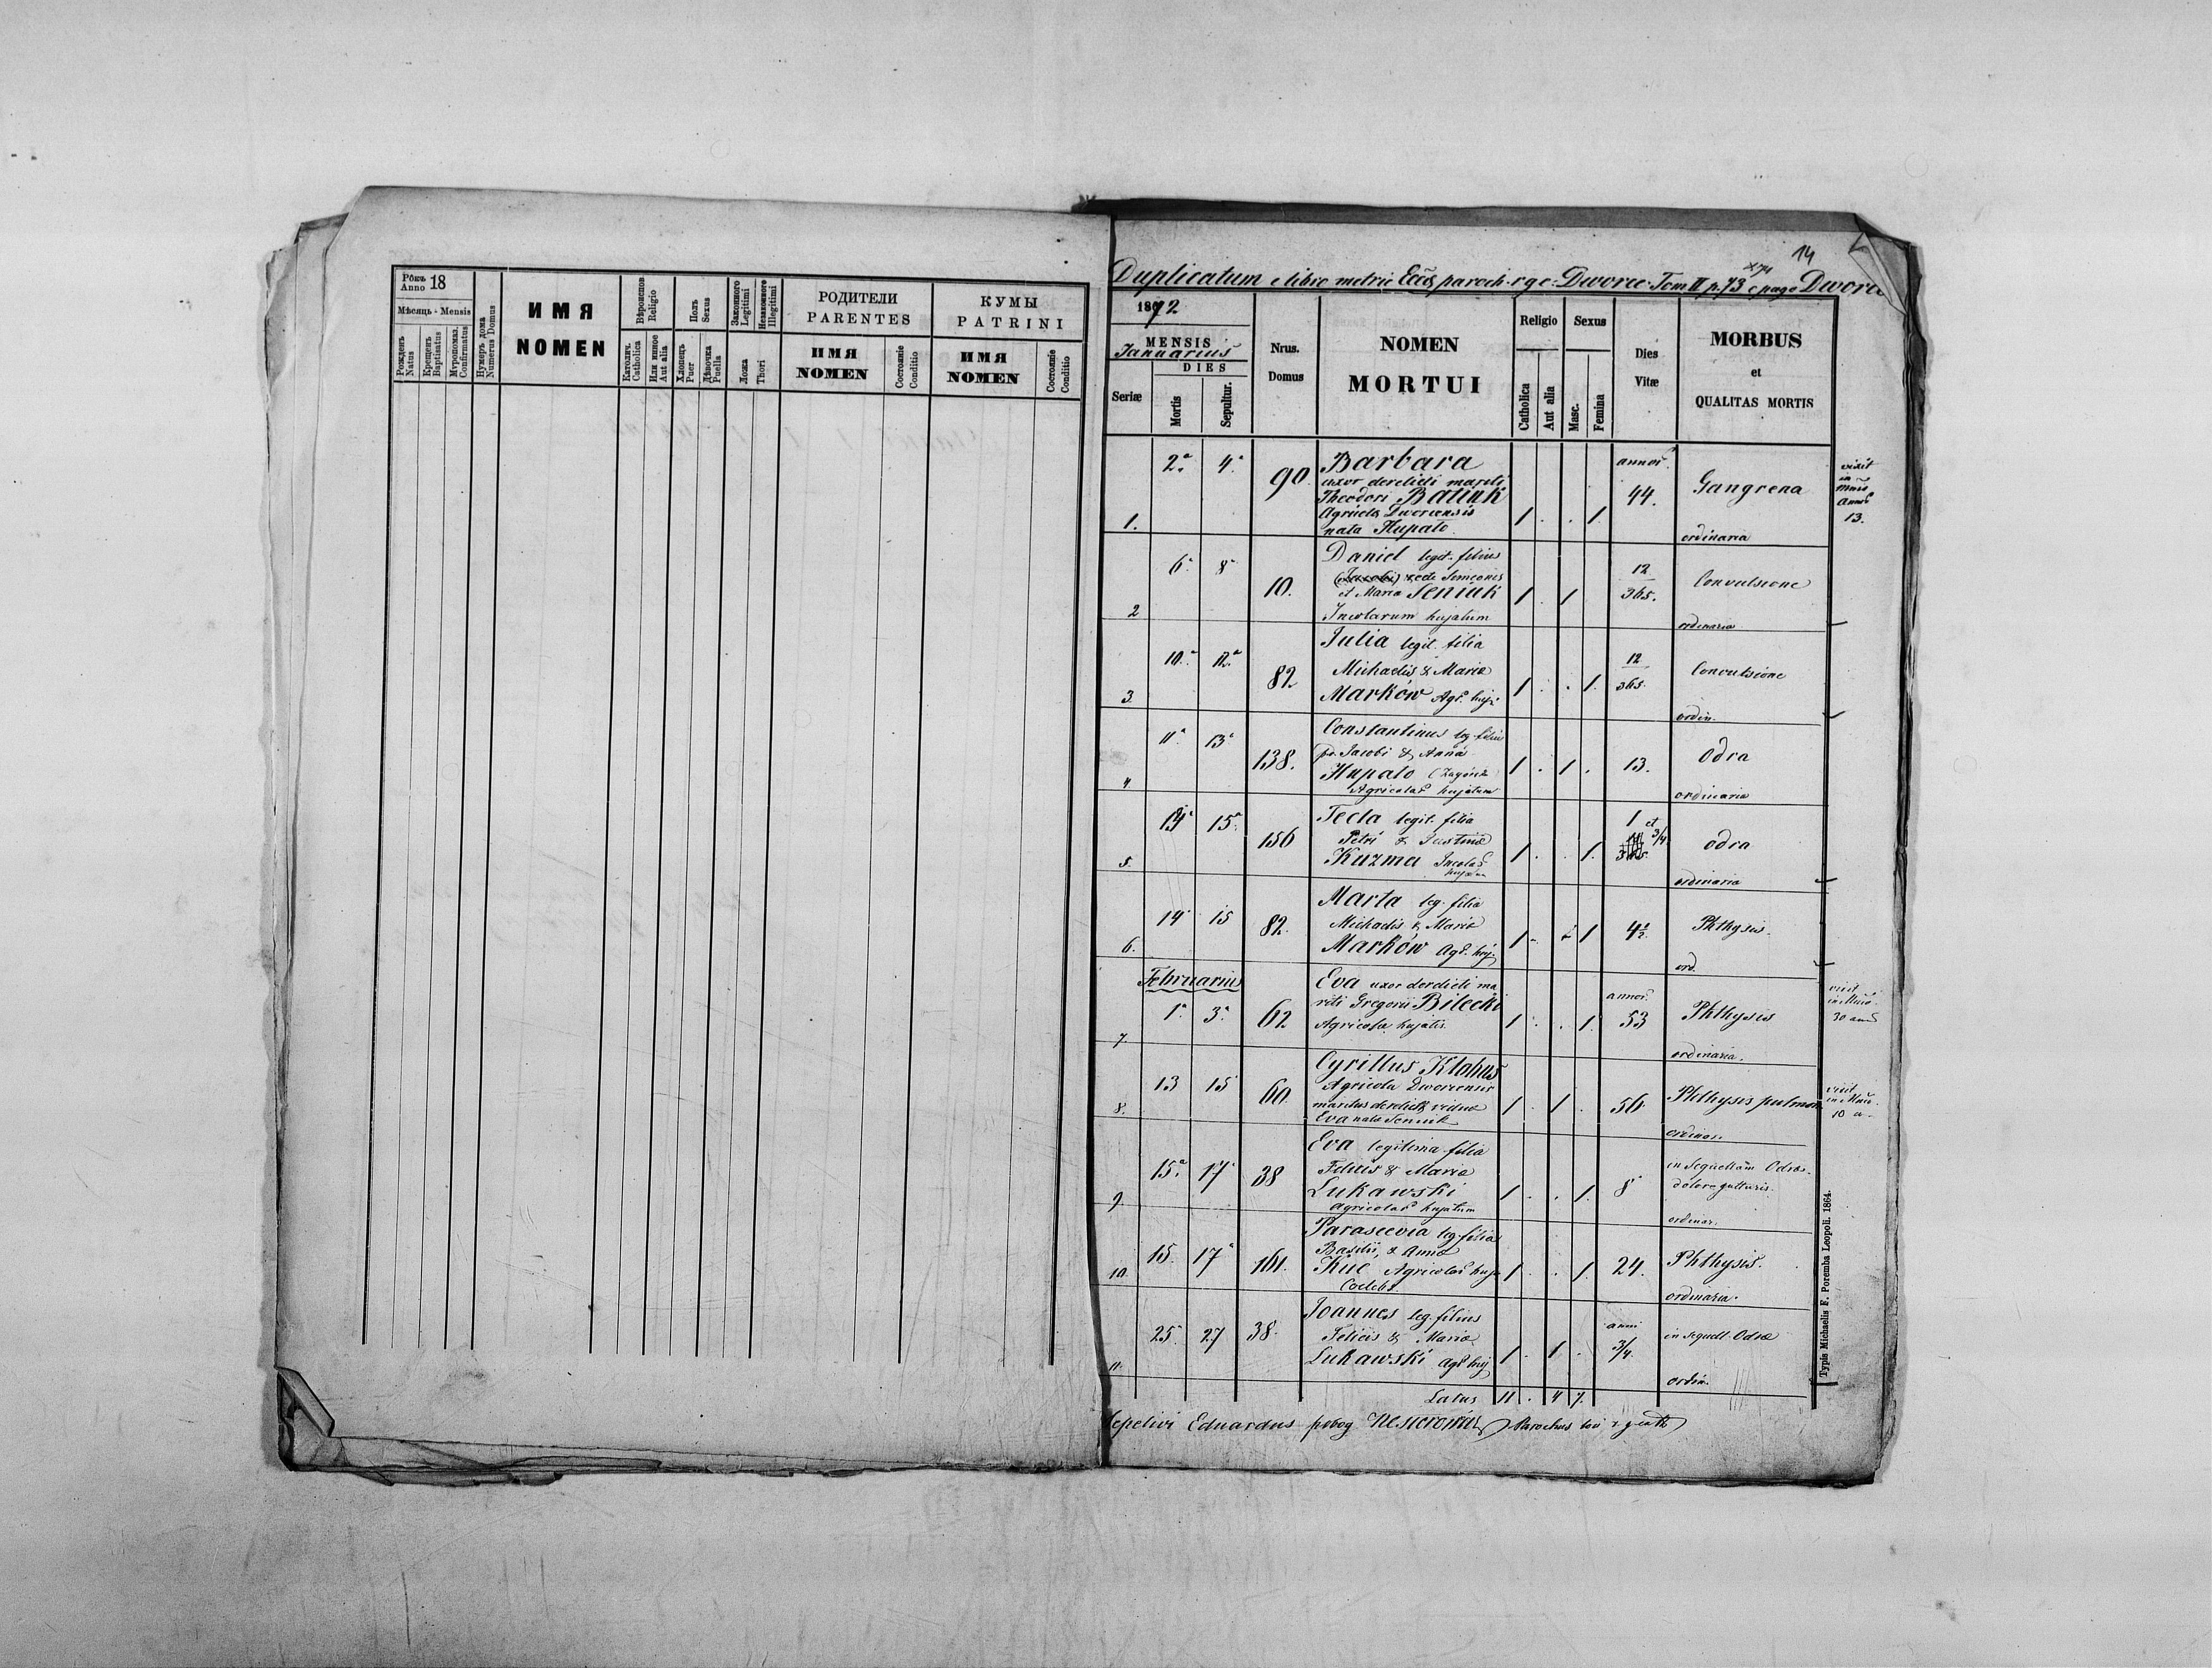 Рокъ 18
Anno
Мѣсяць - Mensis
Рожденъ
Natus
Крещенъ
Baptisatus
Мѵропомаз.
Confirmatus
Нумеръ дома
Numerus Domus
ИМЯ
NOMEN
Вѣроиспов.
Religio
Католич.
Catholica
Или иное
Aut alia
Полъ
Sexus
Хлопець
Puer
Дѣвочка
Puella
Законного
Legitimi
Незаконного
Illegitimi
Ложа
Thori
РОДИТЕЛИ
PARENTES
ИМЯ
NOMEN
Состояніе
Conditio
КУМЫ
PATRINI
ИМЯ
NOMEN
Состояніе
Conditio
14
Duplicatum e libro metric Eccls paroch. r. g. c. Dworce Tom II p. 73 e pago Dworce
1872
MENSIS
Januarius
DIES
Seriæ
Mortis
Sepultur.
Nrus.
Domus
NOMEN
MORTUI
Religio
Catholica
Aut alia
Sexus
Masc.
Femina
Dies
Vitæ
MORBUS
et
QUALITAS MORTIS
1. 2a 4a 90 Barbara
uxor derelicti mariti
Theodori Batiuk
Agricola Dworcensis
nata Hupało
1 . . 1. annor. 44. Gangrena
ordinaria
vixit
in
annos
13.
2 6a 8a 10. Daniel legit. filius
recte Simeonis
et Maria Seniuk
Incolarum hujatum
1 . 1 12/365. Convulsione
ordinaria
3. 10a 12a 82 Julia legit. filia
Michaelis & Maria
Marków Agr. huj.
1 . . 1. 12/365. Convulsione
ordin.
4 11a 13a 138. Constantinus leg. filius
Jacobi & Anna
Hupało
Agricolar hujatum
1 . 1 . 13. Odra
ordinaria
5. 14a 15a 156 Tecla legit. filia
Petri & Justina
Kuzma Incolar
hujatum
1 . . 1. 1 et 3/4 odra
ordinaria
6. 14a 15 82. Marta leg. filia
Michaelis & Maria
Marków Agr. huj.
1 . 1 4 1/2. Phthysis.
ord.
Februarius
7. 1a 3a 62 Eva uxor derelicti ma
riti Gregorii Bilecki
Agricola hujatis.
1 . . 1. annor. 53 Phthysis
ordinaria.
vixit
30
8. 13 15 60. Cyrillus Kłokus
Agricola Dworcensis
maritus derelicta vidua
Eva nata Seniuk
1 . 1 . 56. Phthysis pulmon
ordinar.
vixit
10 a.
9. 15a 17a 38 Eva legitima filia
Felicis & Maria
Łukawski
Agricolar hujatum
1 . . 1. 8 in sequellam Odra
dolore gutturis.
ordinar.
10. 15. 17a 161. Parascevia leg. filia
Basilii & Anna
Kuc Agricolar huj.
Coelebs
1 . . 1. 24. Phthysis.
ordinaria.
11. 25 27 38. Joannes leg. filius
Felicis & Maria
Łukawski Agr. huj.
1 . 1 . anni 3/4. in sequell. Odra
ordin.
Latus 11 . 4 7.
Sepelivi Eduardus Parochus
Typis Michaelis F. Poremba Leopoli. 1864.